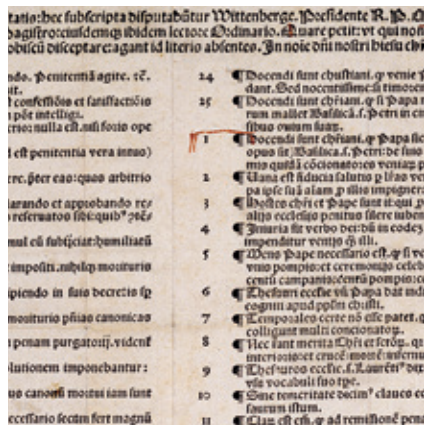 tatio: hec subscripta disputabũtur Wittenberge. Presidente R. P.
magistro: eiusdemq; ibidem lectore Ordinario. Quare petit: vt qui nõ
nobiscũ disceptare: agant id literis absentes. In noie dñi nostri hiesu
ndo. Penitentiã agite. ⁊č.
it.
confessiõis et satisfactiõis
põt intelligi.
terio: nulla est. nisi foris ope
d est penitentia vera intus)
re. preter eas: quas arbitrio
larando et approbando re⸗
reseruatos sibi: quibꝰ
mul eũ subijciat: humiliatũ
impositi. nihilq; morituris
ipiendo in suis decretis sp̃
morituris pñias canonicas
penam purgatorij. vident̃
olutionem imponebantur:
us canonũ morituri iam sunt
necessario secum fert magnũ
24 ¶ Docendi sunt christiani. ꝙ venie
dant. Sed nocentissime: si timorem
25 ¶ Docendi sunt chr̃iani. ꝙ si Papa
rum mallet Basilicã. s. Petri in
ribus ouium suaꝝ.
1 ¶ Docendi sunt chr̃iani. ꝙ Papa sic
opus sit) Basilica. s. Petri: de suis
mis quidã cõcionatores veniaꝝ
2 ¶ Vana est fiducia salutis p̱ lr̃as
pa ipse suã aĩam ꝓ illis impigner
3 ¶ Hostes chr̃i et Pape sunt ij: qui
alijs ecclesijs penitus silere iuben
4 ¶ Iniuria fit verbo dei: dũ in eodẽ
impenditur venijs ꝙ̃ illi.
5 ¶ Mens Pape necessario est. ꝙ si
vnis pompis: et ceremonijs celeb
centũ campanis: centũ pompis:
6 ¶ Thesauri ecclie vñ Papa dat ind
cogniti apud pp̃lm christi.
7 ¶ Temporales certe nõ esse patet. q
colligunt multi concionatoꝝ.
8 ¶ Nec sunt merita Chr̃i et sctõꝝ.
interioris: et crucẽ: mortẽ: infernũ
9 ¶ Thesauros ecclie. s. Laurẽtiꝰ
vsu vocabuli suo tpe.
10 ¶ Sine temeritate dicimꝰ claues
saurum istum.
11 ¶ Clar est em̃. ꝙ ad remissionẽ